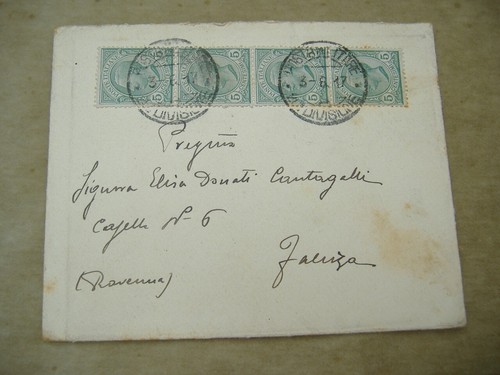 5 5 5 5
3-6 17
DIVISIONE
3-6 17
DIVISIONE
Preg.ma
Signora Elisa Donati Cantagalli
N-6
Faenza
(Ravenna)